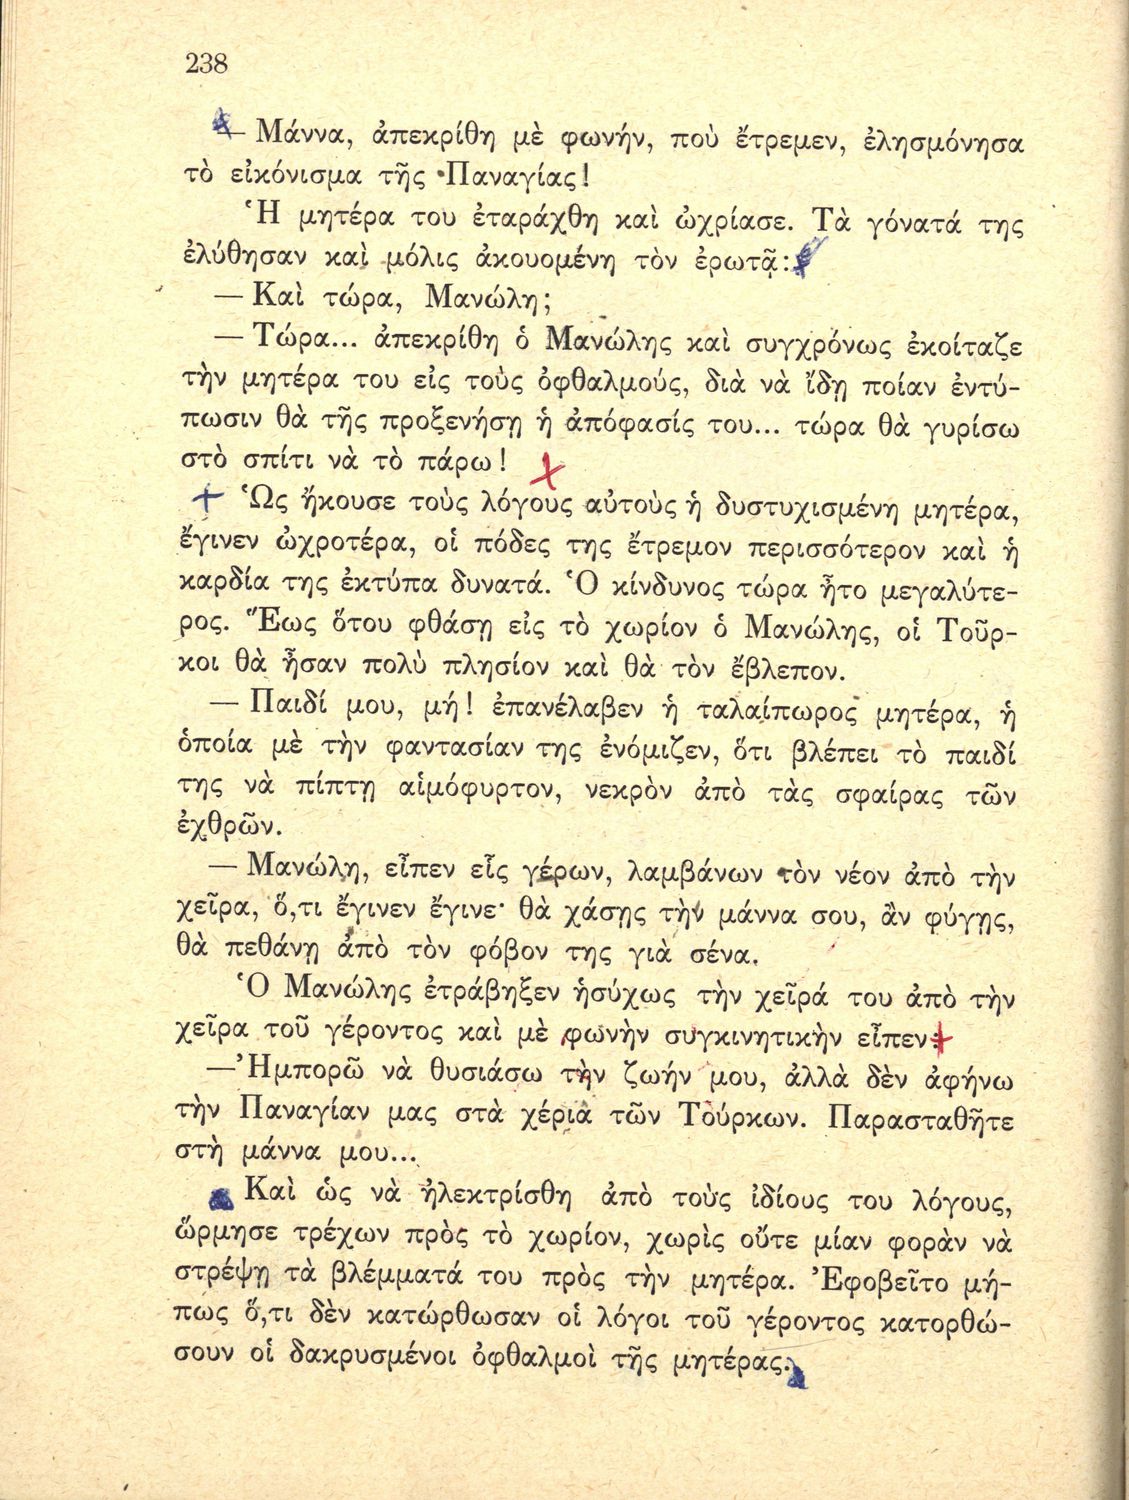 238
— Μάννα, ἀπεκρίθη μὲ φωνήν, ποὺ ἔτρεμεν, ἐλησμόνησα
τὸ εἰκόνισμα τῆς Παναγίας!
Ἡ μητέρα του ἐταράχθη καὶ ὠχρίασε. Τὰ γόνατά της
ἐλύθησαν καὶ μόλις ἀκουομένη τὸν ἐρωτᾷ:
— Καὶ τώρα, Μανώλη;
— Τώρα... ἀπεκρίθη ὁ Μανώλης καὶ συγχρόνως ἐκοίταζε
τὴν μητέρα του εἰς τοὺς ὀφθαλμούς, διὰ νὰ ἴδῃ ποίαν ἐντύ-
πωσιν θὰ τῆς προξενήσῃ ἡ ἀπόφασίς του... τώρα θὰ γυρίσω
στὸ σπίτι νὰ τὸ πάρω!
Ὡς ἤκουσε τοὺς λόγους αὐτοὺς ἡ δυστυχισμένη μητέρα,
ἔγινεν ὠχροτέρα, οἱ πόδες της ἔτρεμον περισσότερον καὶ ἡ
καρδία της ἐκτύπα δυνατά. Ὁ κίνδυνος τώρα ἦτο μεγαλύτε-
ρος. Ἕως ὅτου φθάσῃ εἰς τὸ χωρίον ὁ Μανώλης, οἱ Τοῦρ-
κοι θὰ ἦσαν πολὺ πλησίον καὶ θὰ τὸν ἔβλεπον.
— Παιδί μου, μή! ἐπανέλαβεν ἡ ταλαίπωρος μητέρα, ἡ
ὁποία μὲ τὴν φαντασίαν της ἐνόμιζεν, ὅτι βλέπει τὸ παιδί
της νὰ πίπτῃ αἱμόφυρτον, νεκρὸν ἀπὸ τὰς σφαίρας τῶν
ἐχθρῶν.
— Μανώλη, εἶπεν εἷς γέρων, λαμβάνων τὸν νέον ἀπὸ τὴν
χεῖρα, ὅ,τι ἔγινεν ἔγινε· θὰ χάσῃς τὴν μάννα σου, ἂν φύγῃς,
θὰ πεθάνῃ ἀπὸ τὸν φόβον της γιὰ σένα.
Ὁ Μανώλης ἐτράβηξεν ἡσύχως τὴν χεῖρά του ἀπὸ τὴν
χεῖρα τοῦ γέροντος καὶ μὲ φωνὴν συγκινητικὴν εἶπεν:
—Ἠμπορῶ νὰ θυσιάσω τὴν ζωήν μου, ἀλλὰ δὲν ἀφήνω
τὴν Παναγίαν μας στὰ χέρια τῶν Τούρκων. Παρασταθῆτε
στὴ μάννα μου...
Καὶ ὡς νὰ ἠλεκτρίσθη ἀπὸ τοὺς ἰδίους του λόγους,
ὥρμησε τρέχων πρὸς τὸ χωρίον, χωρὶς οὔτε μίαν φορὰν νὰ
στρέψῃ τὰ βλέμματά του πρὸς τὴν μητέρα. Ἐφοβεῖτο μή-
πως ὅ,τι δὲν κατώρθωσαν οἱ λόγοι τοῦ γέροντος κατορθώ-
σουν οἱ δακρυσμένοι ὀφθαλμοὶ τῆς μητέρας.